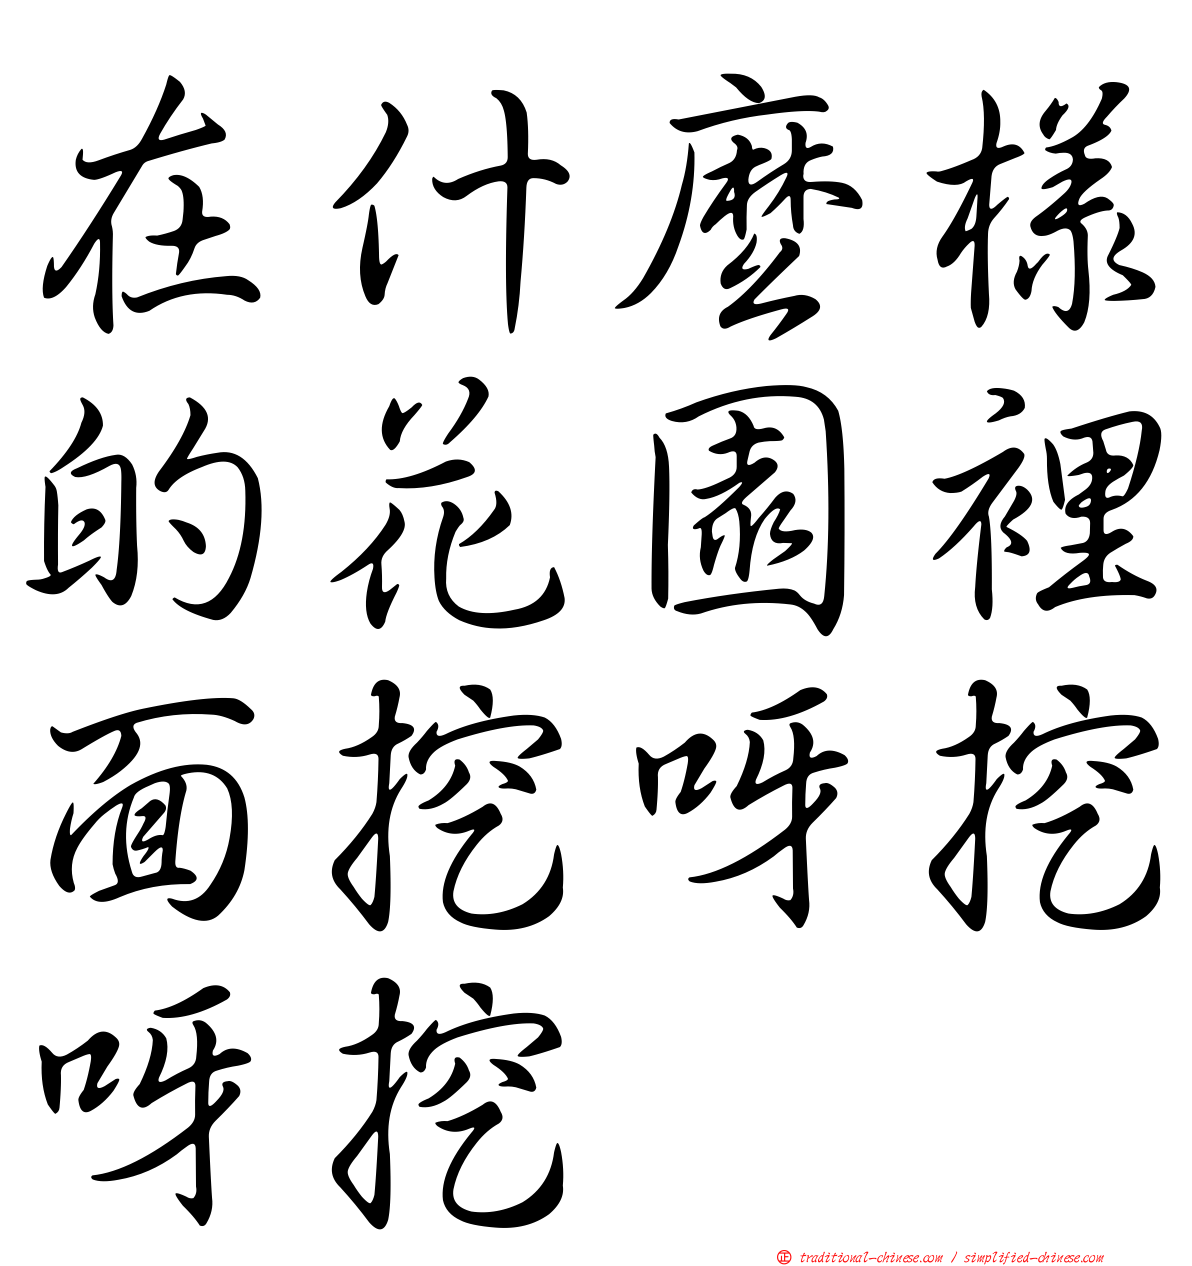 在什麼樣
的花園裡
面挖呀挖
呀挖
正 traditional-chinese.com / simplified-chinese.com